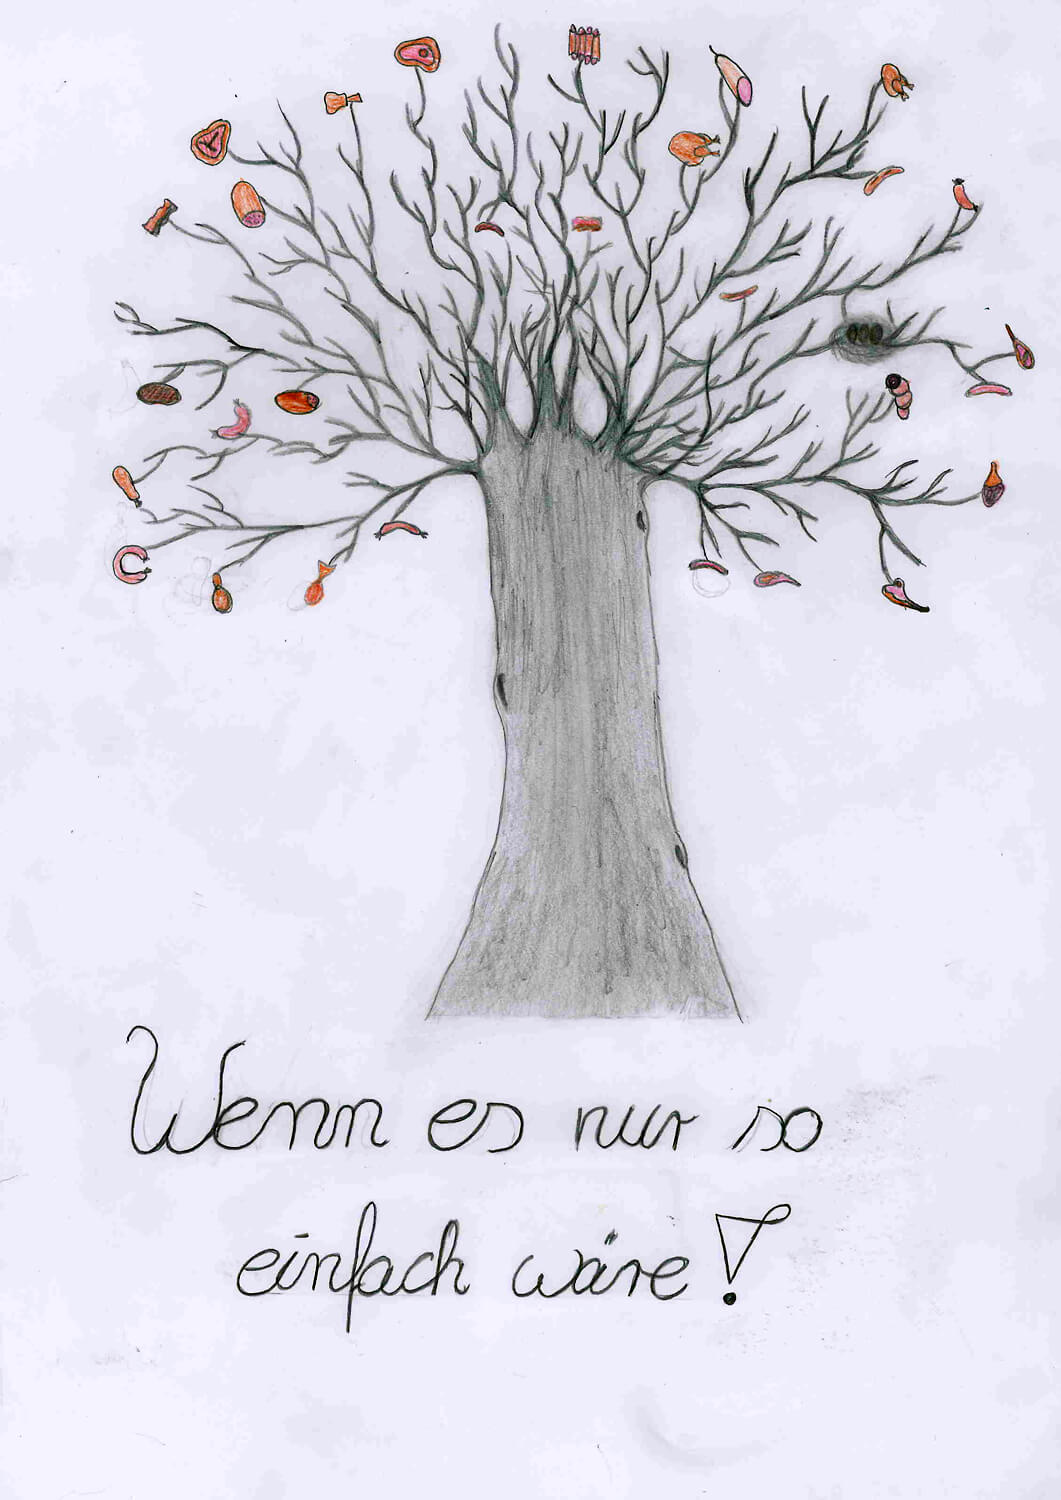 Wenn es nur so
einfach wäre!